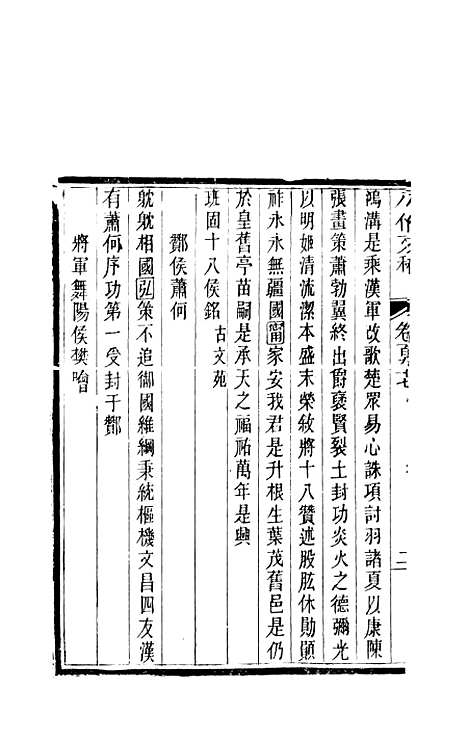 鴻溝是乘漢軍改歌楚眾易心誅項討羽諸夏以康陳
張畫策蕭勃翼終出爵褒賢裂土封功炎火之德彌光
以明姬清流潔本盛末榮敘將十八贊述股肱休勛顯
祚永永無疆國甯家安我君是升根生葉茂舊邑是仍
於皇舊亭苗嗣是承天之福祐萬年是興
班固十八侯銘 古文苑
酇侯蕭何
躭躭相國弘策不追御國維綱秉統樞機文昌四友漢
有蕭何序功第一受封于酇
將軍舞陽侯樊噲